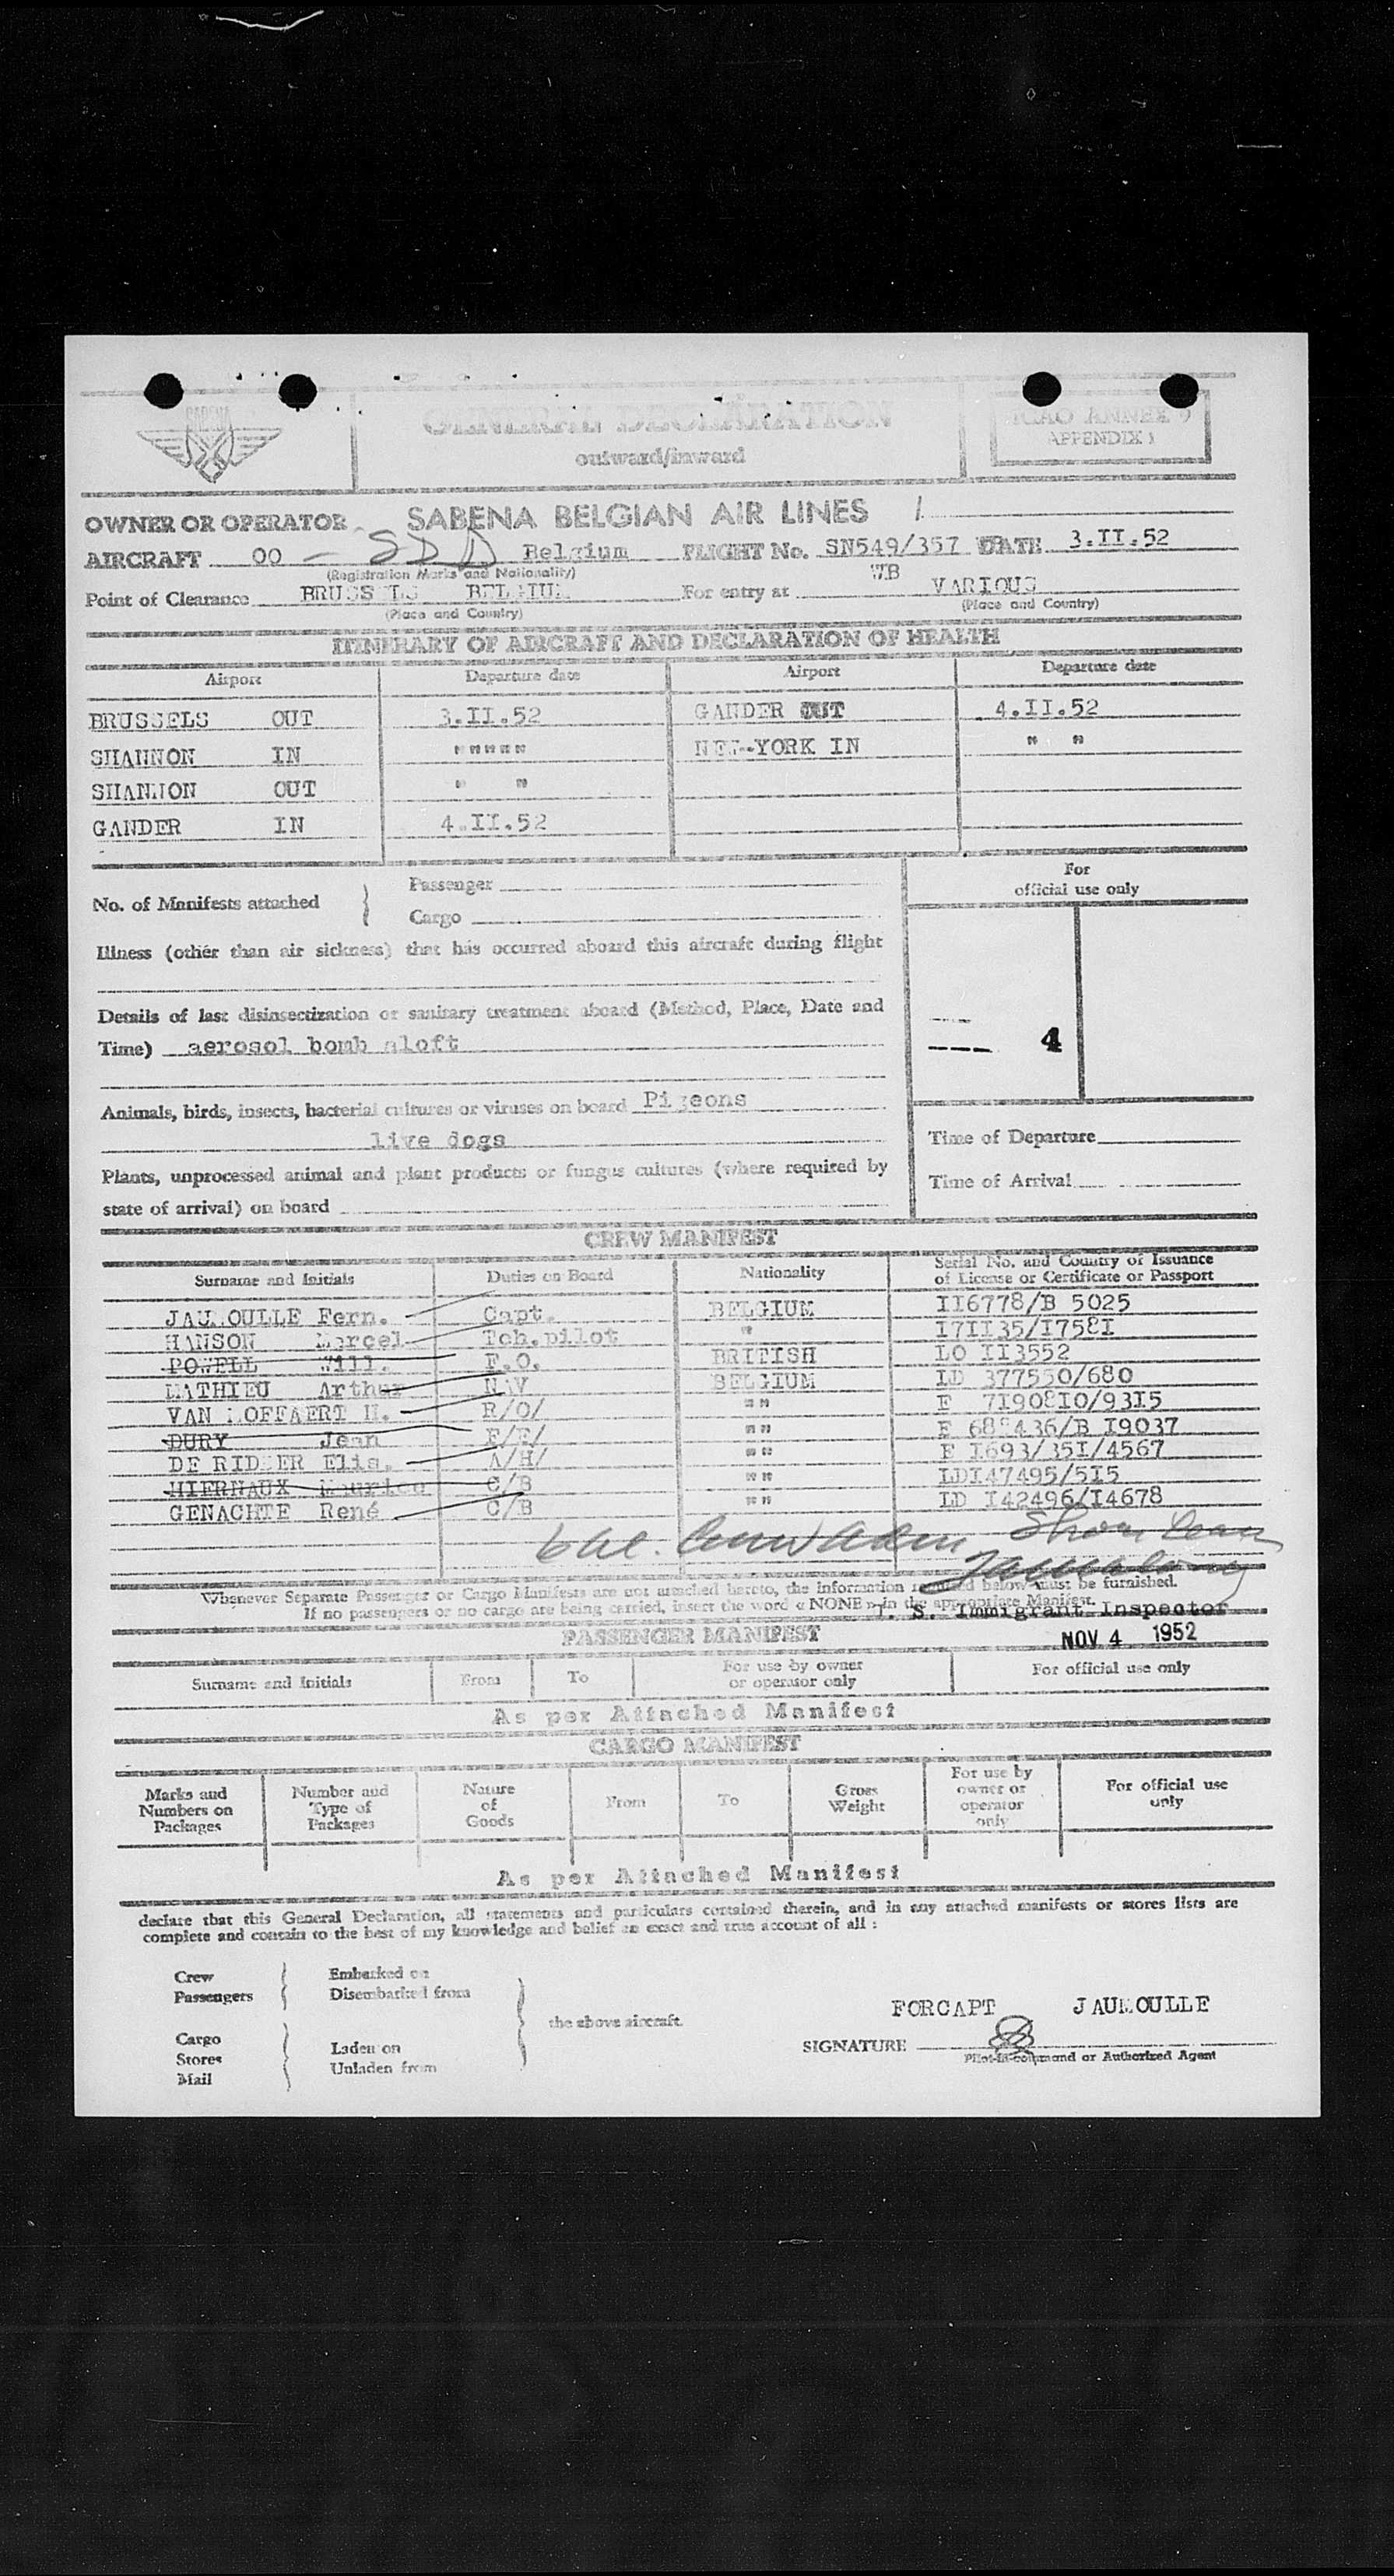 SABENA
GENERAL DECLARATION
outward/inward
ICAO ANNEX 9
APPENDIX 1
OWNER OR OPERATOR SABENA BELGIAN AIR LINES 1
AIRCRAFT OO - SDD Belgium FLIGHT No. SN549/357 DATE 3.II.52
(Registration Marks and Nationality) WB
Point of Clearance BRUSSELS BELGIUM For entry at VARIOUS
(Place and Country) (Place and Country)
ITINERARY OF AIRCRAFT AND DECLARATION OF HEALTH
Airport Departure date Airport Departure date
BRUSSELS OUT 3.II.52 GANDER OUT 4.II.52
SHANNON IN " " " " " NEW-YORK IN " "
SHANNON OUT " "
GANDER IN 4.II.52
For
official use only
No. of Manifests attached } Passenger
Cargo
Illness (other than air sickness) that has occurred aboard this aircraft during flight
Details of last disinsectization or sanitary treatment aboard (Method, Place, Date and
Time) aerosol bomb aloft
4
Animals, birds, insects, bacterial cultures or viruses on board Pigeons
live dogs
Time of Departure
Plants, unprocessed animal and plant products or fungus cultures (where required by
state of arrival) on board
Time of Arrival
CREW MANIFEST
Surname and Initials Duties on Board Nationality Serial No. and Country of Issuance
of License or Certificate or Passport
JAUMOULLE Fern. Capt. BELGIUM II6778/B 5025
HANSON Marcel Tch.pilot " I7II35/I758I
POWELL Will. F.O. BRITISH LO II3552
MATHIEU Arthur NAV BELGIUM LD 377550/680
VAN MOFFAERT H. R/O/ "" F 7190810/93I5
DURY Jean F/E/ "" F 688436/B I9037
DE RIDDER Elia. A/H/ "" F I693/35I/4567
HIERNAUX Maurice C/B "" LDI47495/5I5
GENACHTE René C/B "" LD I42496/I4678
Whenever Separate Passenger or Cargo Manifests are not attached hereto, the information required below must be furnished.
If no passengers or no cargo are being carried, insert the word « NONE » in the appropriate Manifest.
U. S. Immigrant Inspector
NOV 4 1952
PASSENGER MANIFEST
Surname and Initials From To For use by owner
or operator only For official use only
As per Attached Manifest
CARGO MANIFEST
Marks and
Numbers on
Packages Number and
Type of
Packages Nature
of
Goods From To Gross
Weight For use by
owner or
operator
only For official use
only
As per Attached Manifest
declare that this General Declaration, all statements and particulars contained therein, and in any attached manifests or stores lists are
complete and contain to the best of my knowledge and belief an exact and true account of all :
Crew
Passengers
Embarked on
Disembarked from
Cargo
Stores
Mail
Laden on
Unladen from
the above aircraft.
FORCAPT JAUMOULLE
SIGNATURE
Pilot-in-command or Authorized Agent